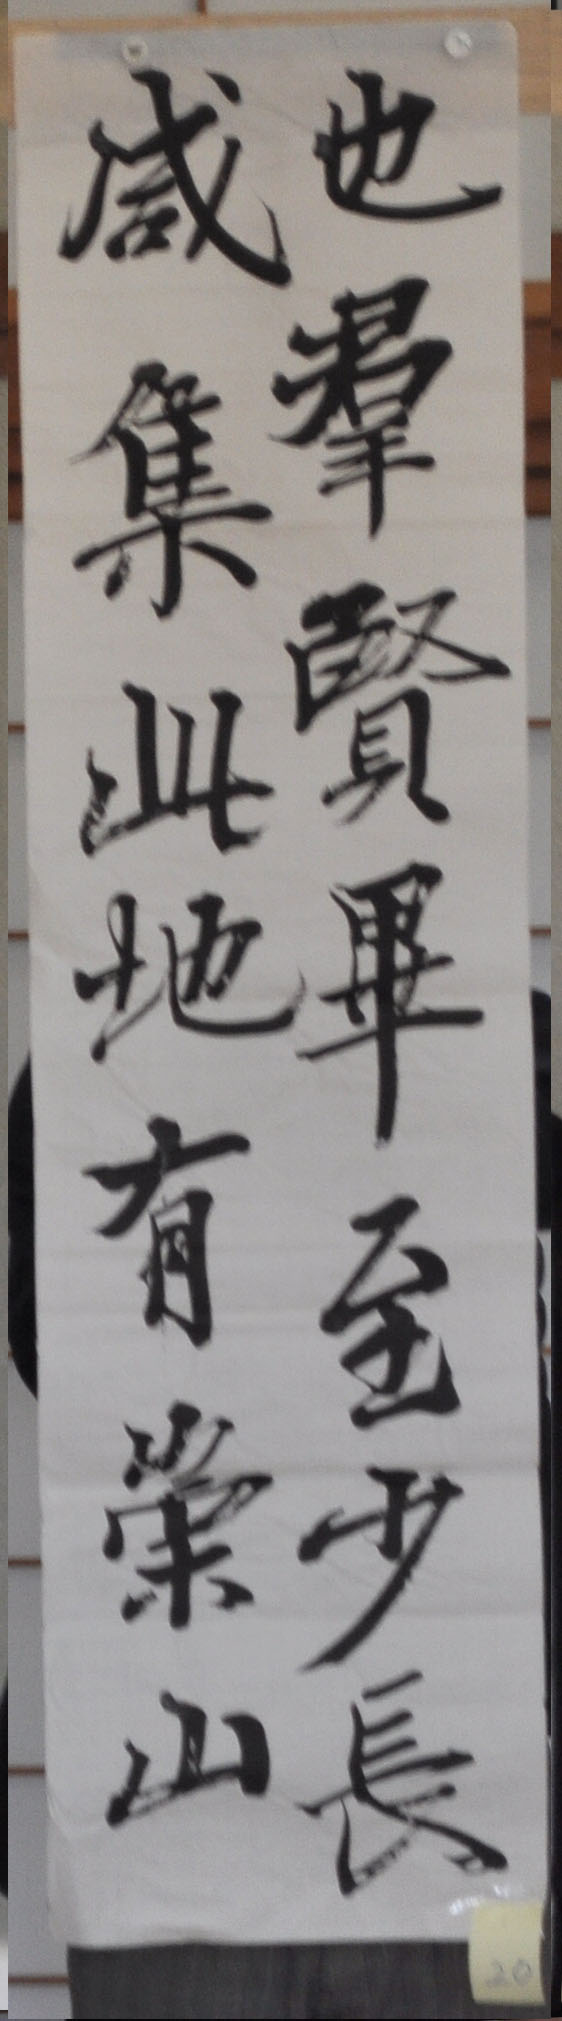 也羣賢畢至少長
咸集此地有崇山
20